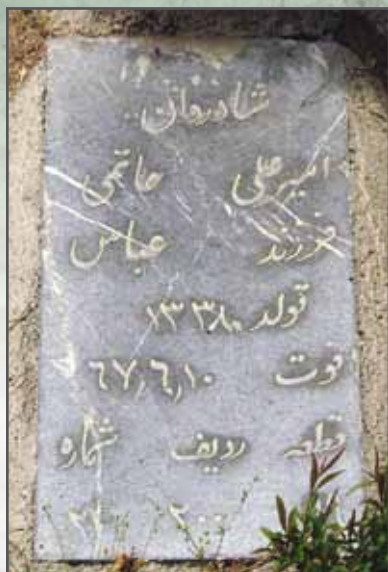 شادروان
امیرعلی حاتمی
فرزند عباس
تولد ۱۳۳۸
فوت ۶۷٫۶٫۱۰
قطعه ردیف شماره